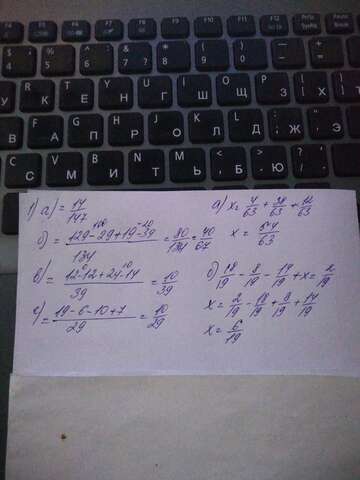 F4 F5 F6 F7 F8 F9 F10 F11 F12 PrtSc SysRq Pause Break
$ 4 % 5 ^ 6 & 7 * 8 ( 9 ) 0
У К Е Н Г Ш Щ З Х
В А П Р О Л Д Ж Э
С М И Т Ь Б Ю
1) а) = 14/147
б) = (129 - 29 + 19 - 39)/134 = 80/134 = 40/67
100 -20
в) = (12 - 12 + 24 - 14)/39 = 10/39
10
г) = (19 - 6 - 10 + 7)/29 = 10/29
а) x = 4/63 + 38/63 + 12/63
x = 54/63
б) 18/19 - 8/19 - 14/19 + x = 2/19
x = 2/19 - 18/19 + 8/19 + 14/19
x = 6/19